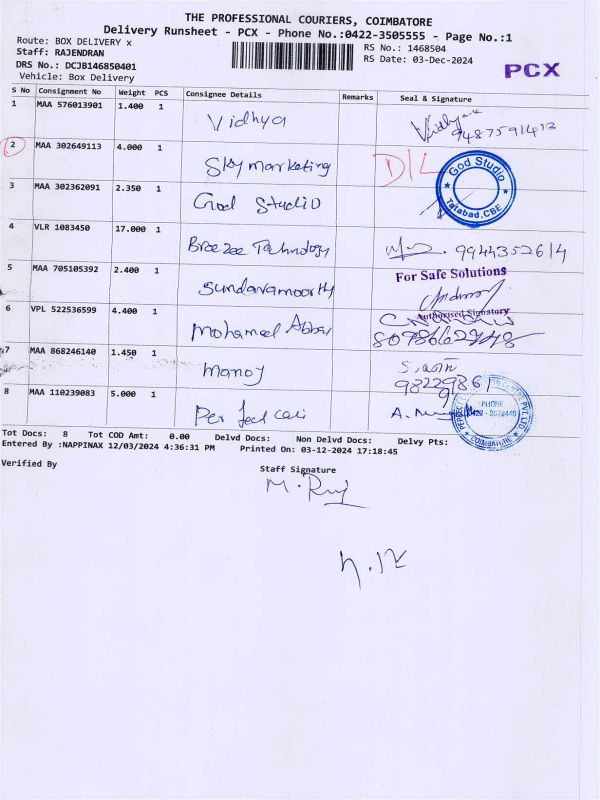 THE PROFESSIONAL COURIERS, COIMBATORE
Delivery Runsheet - PCX - Phone No.:0422-3505555 - Page No.:1
Route: BOX DELIVERY x RS No.: 1468504
Staff: RAJENDRAN RS Date: 03-Dec-2024
DRS No.: DCJB146850401
Vehicle: Box Delivery
PCX
S No Consignment No Weight PCS Consignee Details Remarks Seal & Signature
1 MAA 576013901 1.400 1 Vidhya
2 MAA 302649113 4.000 1 Sky marketing D/L
God Studio
Tatabad, CBE
3 MAA 302362091 2.350 1 God Studio
4 VLR 1083450 17.000 1 Breezee Technology 9944352614
5 MAA 705105392 2.400 1 Sundaramoorthy For Safe Solutions
Authorised Signatory
6 VPL 522536599 4.400 1 Mohamed
7 MAA 868246140 1.450 1 Manoj
8 MAA 110239083 5.000 1
PHONE
COIMBATORE
Tot Docs: 8 Tot COD Amt: 0.00 Delvd Docs: Non Delvd Docs: Delvy Pts:
Entered By :NAPPINAX 12/03/2024 4:36:31 PM Printed On: 03-12-2024 17:18:45
Verified By Staff Signature